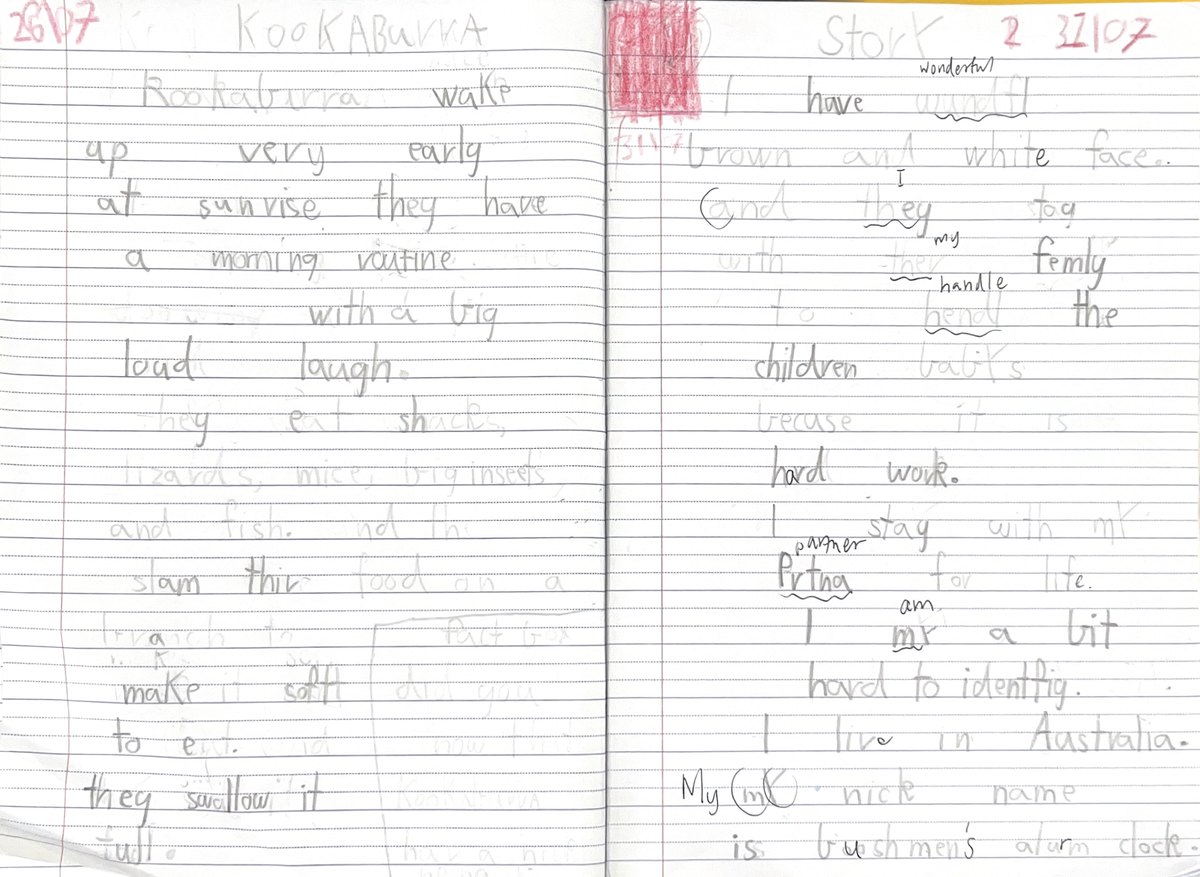 26\07 KooKABurrA
Kookaburra wake
up very early
at sunrise they have
a morning routine
with a big
loud laugh.
they eat snacks,
lizards, mice, big insets
and fish. nd th
slam thir food on a
branch to
make it sofft
to eat.
they swallow it
full.
fact box
did you
now that
Kookaburra
hav a nick
StorY 2 31/07
wonderful
I have wundfl
31\7 brown and white face..
I
and they stay
my
with ther femly
handle
to hendl the
children babits
becuse it is
hard work.
I stay with mY
partner
Prtna for life.
am
I mr a bit
hard to identfig.
I live in Australia.
My mY nick name
is bushmen's alurm clock.